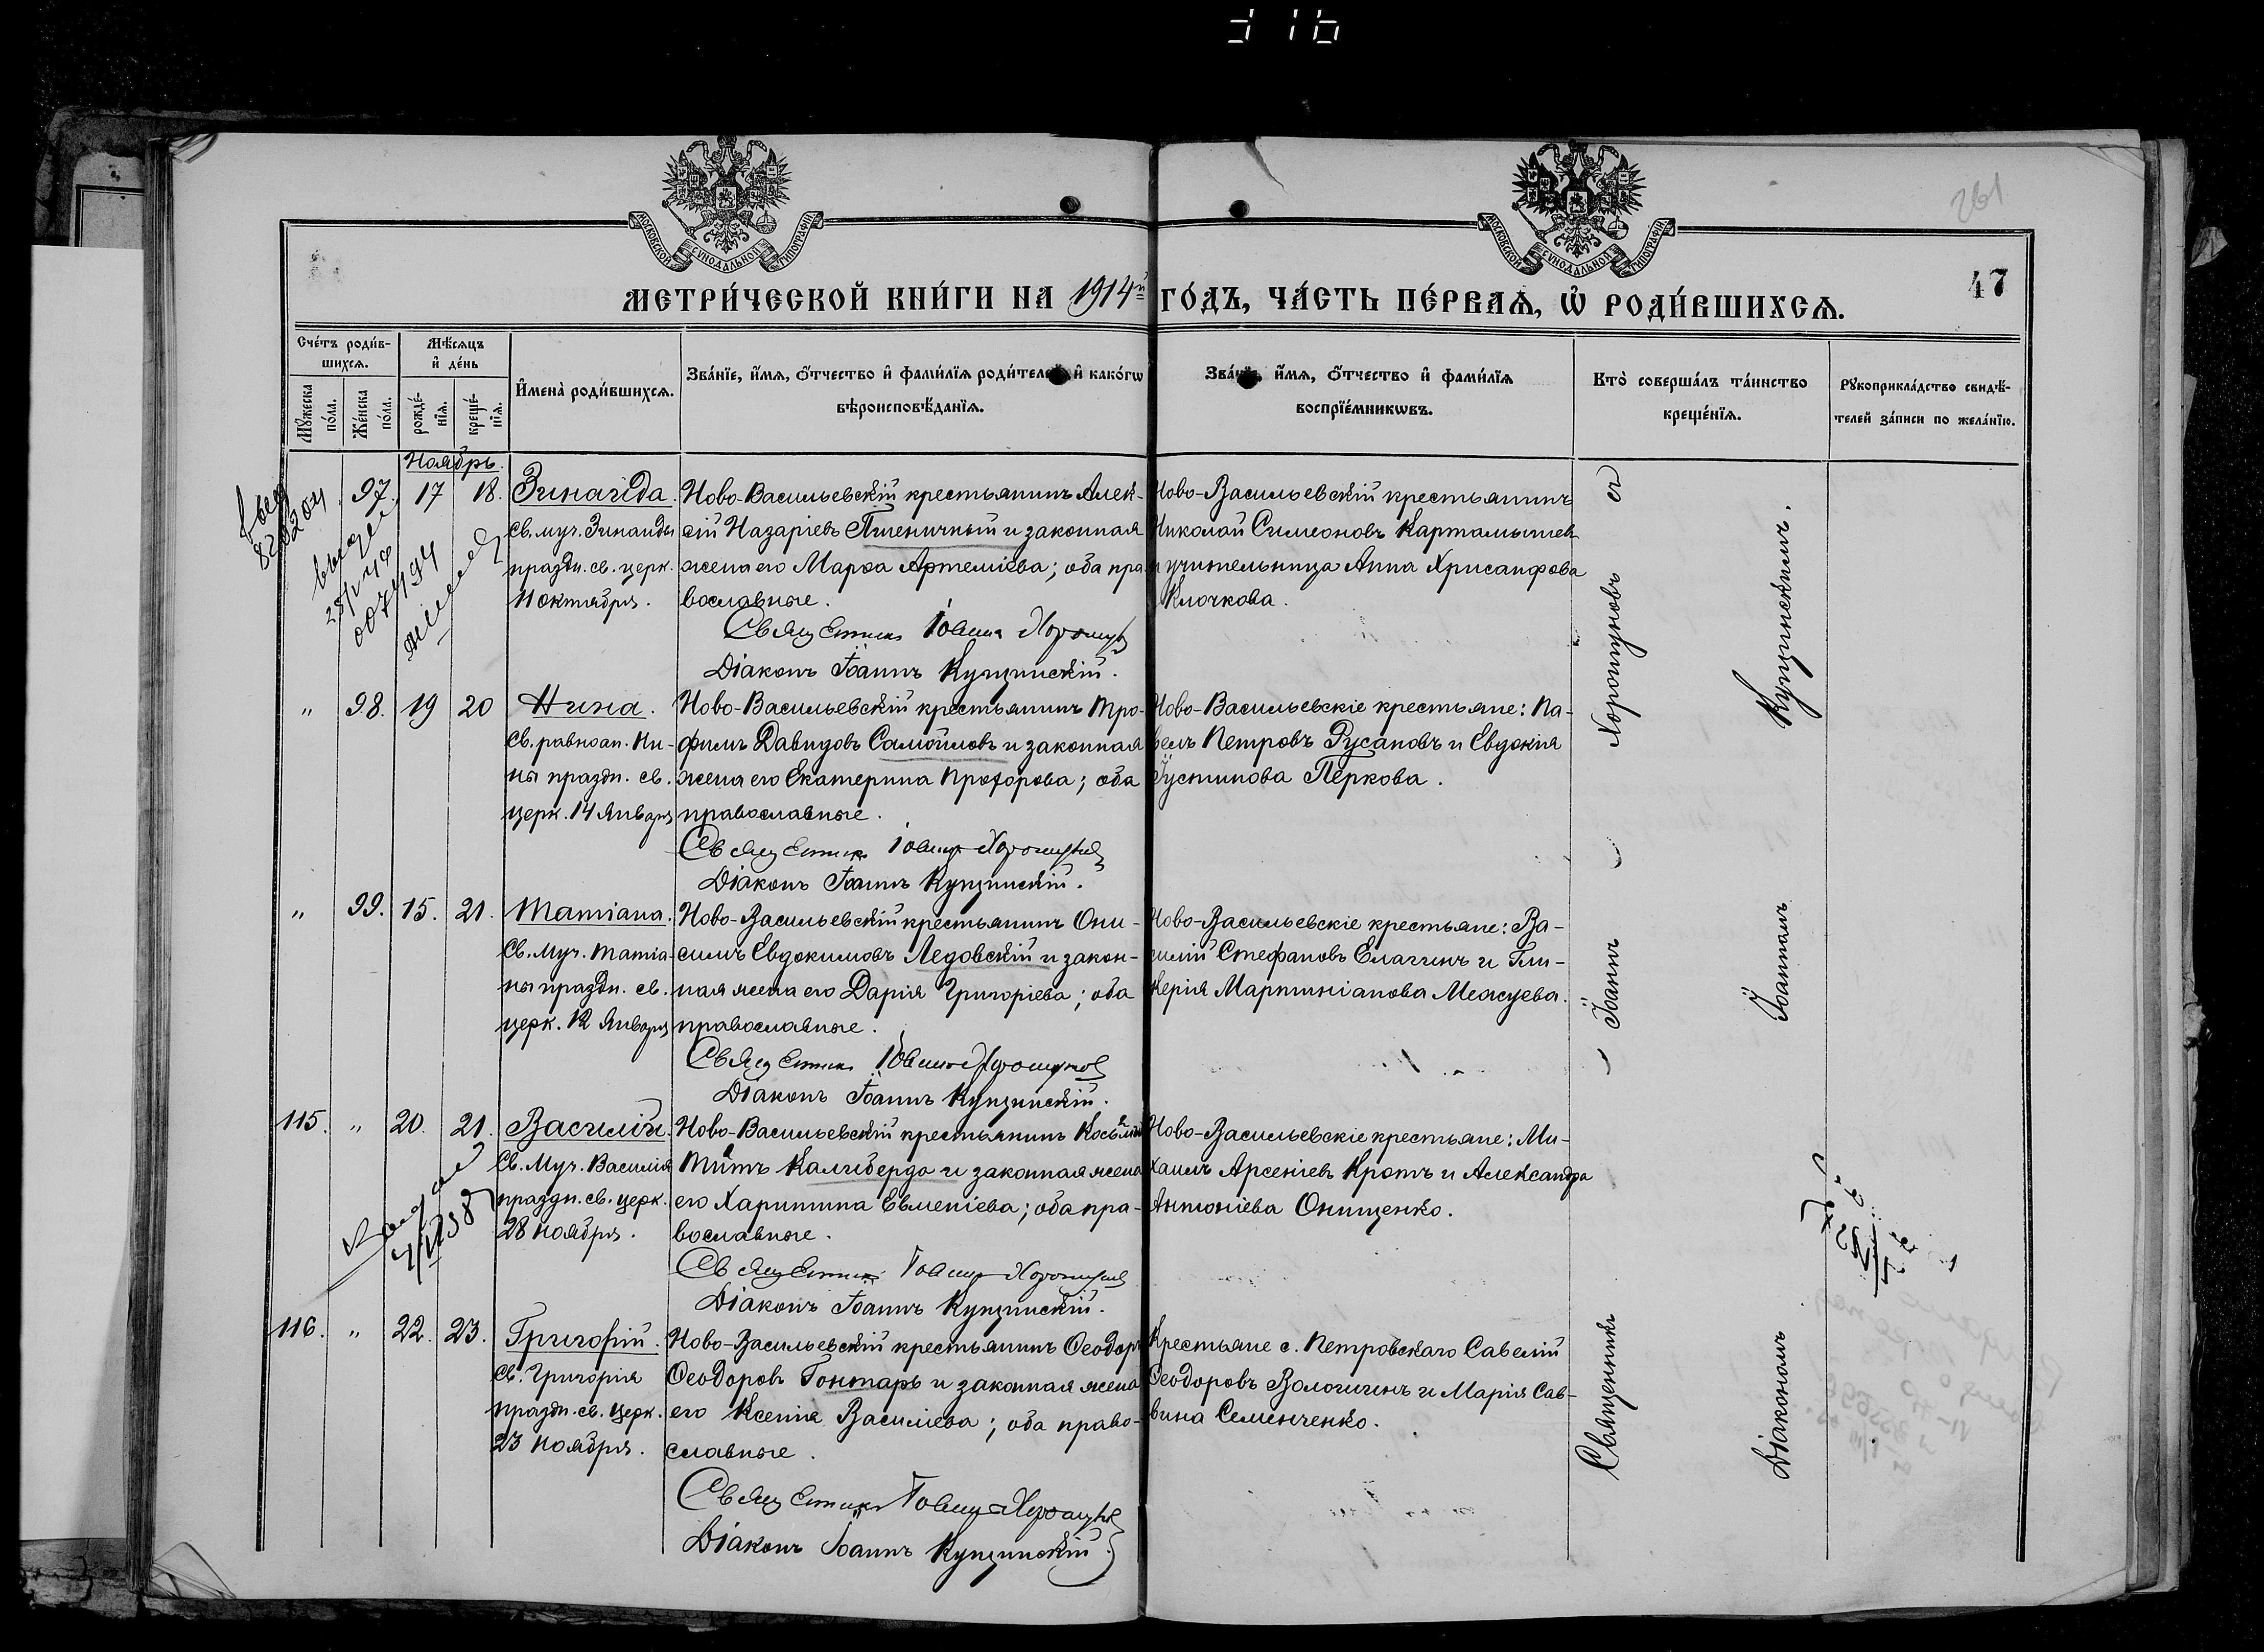 МОСКОВСКОЙ СѴНОДАЛЬНОЙ ТИПОГРАФІИ
МОСКОВСКОЙ СѴНОДАЛЬНОЙ ТИПОГРАФІИ
47
МЕТРИ́ЧЕСКОЙ КНИ́ГИ НА 1914й ГО́ДЪ, ЧА́СТЬ ПЕ́РВАѦ, Ѡ҆ РОДИ́ВШИХСѦ.
Сче́тъ роди́в-
шихсѧ.
Мꙋ́жеска по́ла.
Же́нска по́ла.
Мѣ́сѧцъ
и҆ де́нь
рожде́-
нїѧ.
креще́-
нїѧ.
И҆мена̀ роди́вшихсѧ.
Зва́нїе, и҆́мѧ, ѻ҆́тчество и҆ фами́лїѧ роди́телей и҆ како́гѡ
вѣроисповѣ́данїѧ.
Зва́нїе, и҆́мѧ, ѻ҆́тчество и҆ фами́лїѧ
воспрїе́мникѡвъ.
Кто̀ соверша́лъ та́инство
креще́нїѧ.
Рꙋкоприкла́дство свидѣ́-
телей за́писи по жела́нїю.
Ноябрь.
97. 17 18. Зинаида.
Св. муч. Зинаиды
праздн. св. церк.
11 октября.
Ново-Васильевскій крестьянинъ Алек-
сій Назаріевъ Пшеничный и законная
жена его Марѳа Артеміева; оба пра-
вославные.
Священникъ Іоаннъ Хорошунов
Діаконъ Іоаннъ Кущинскій.
Ново-Васильевскій крестьянинъ
Николай Симеоновъ Картамышев
и учительница Анна Хрисанфова
Клочкова.
„ 98. 19 20 Нина.
Св. равноап. Ни-
ны праздн. св.
церк. 14 Января
Ново-Васильевскій крестьянинъ Тро-
фимъ Давидовъ Самойловъ и законная
жена его Екатерина Прохорова; оба
православные.
Священникъ Іоаннъ Хорошунов
Діаконъ Іоаннъ Кущинскій.
Ново-Васильевскіе крестьяне: Па-
велъ Петровъ Русановъ и Евдокія
Іустинова Перкова.
„ 99. 15. 21. Татіана.
Св. Муч. Татіа-
ны праздн. св.
церк. 12 Января
Ново-Васильевскій крестьянинъ Они-
симъ Евдокимовъ Ледовскій и закон-
ная жена его Дарія Григоріева; оба
православные.
Священникъ Іоаннъ Хорошунов
Діаконъ Іоаннъ Кущинскій.
Ново-Васильевскіе крестьяне: Ва-
силій Стефановъ Елагинъ и Гли-
керія Мартиніанова Межуева.
115. „ 20. 21. Василій.
Св. Муч. Василія
праздн. св. церк.
28 ноября.
Ново-Васильевскій крестьянинъ Косьма
Титъ Калиберда и законная жена
его Харитина Евменіева; оба пра-
вославные.
Священникъ Іоаннъ Хорошунов
Діаконъ Іоаннъ Кущинскій.
Ново-Васильевскіе крестьяне: Ми-
хаилъ Арсеніевъ Кротъ и Александра
Антоніева Онищенко.
116. „ 22. 23. Григорій.
Св. Григорія
праздн. св. церк.
23 ноября.
Ново-Васильевскій крестьянинъ Ѳеодоръ
Ѳеодоровъ Гонтарь и законная жена
его Ксенія Василіева; оба право-
славные.
Священникъ Іоаннъ Хорошунов
Діаконъ Іоаннъ Кущинскій.
Крестьяне с. Петровскаго Савелій
Ѳеодоровъ Вологинъ и Марія Сав-
вина Семенченко.
Священникъ Іоаннъ Хорошуновъ съ
Діакономъ Іоанномъ Кущинскимъ.